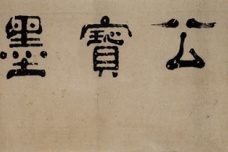 公寶墨